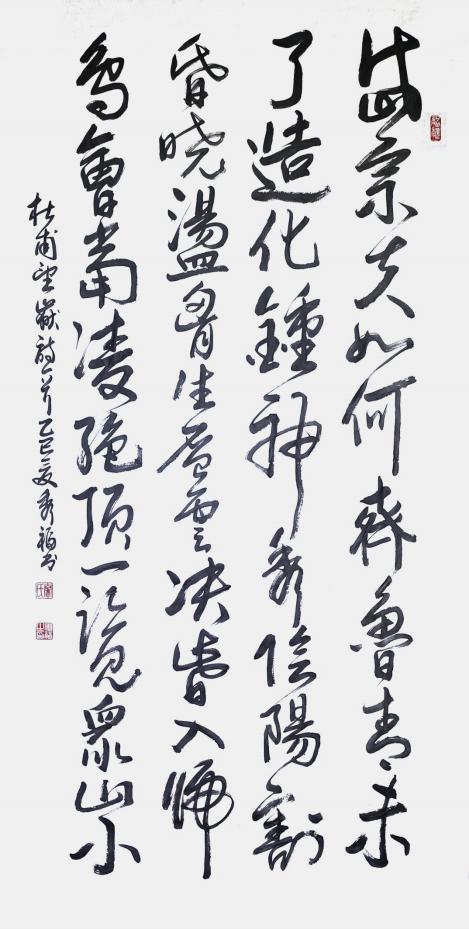 岱宗夫如何齊魯青未
了造化鍾神秀陰陽割
昏晓盪胷生層雲決眥入歸
鳥會當凌絕頂一覽衆山小
杜甫望嶽詩一首乙巳夏秀福書